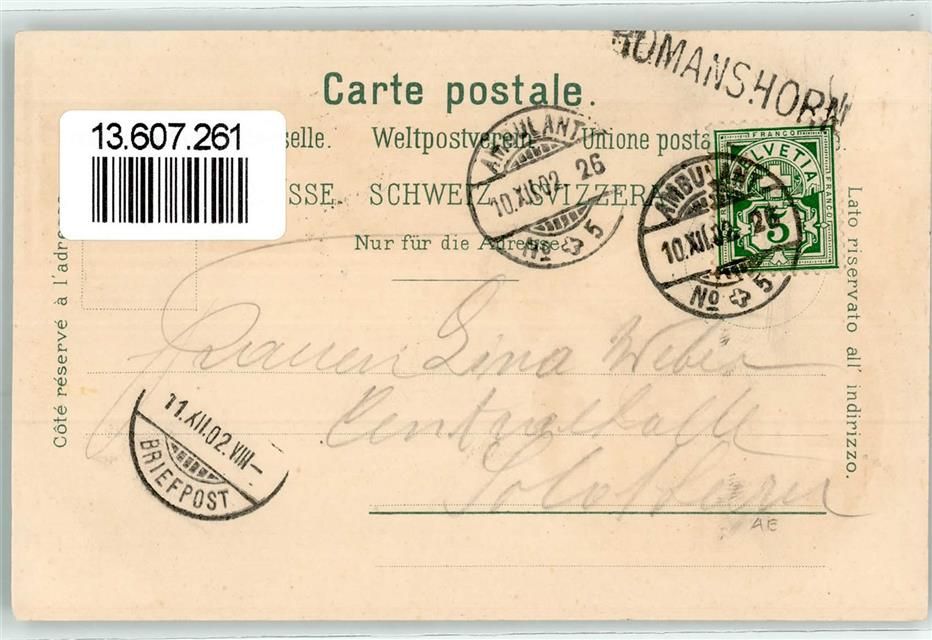 ROMANSHORN
Carte postale.
13.607.261
selle. Weltpostverein Unione posta
SSE. SCHWEIZ. SVIZZERA
Nur für die Adresse
AMBULANT
10.XII.02 26
No 5
AMBULANT
10.XII.02 26
No 5
FRANCO
HELVETIA
5
FRANCO
Côté réservé à l'adre
Lato riservato all' indirizzo.
Frauen Lina Weber
Centralhalle
Solothurn
11.XII.02.VIII—
BRIEFPOST
AE